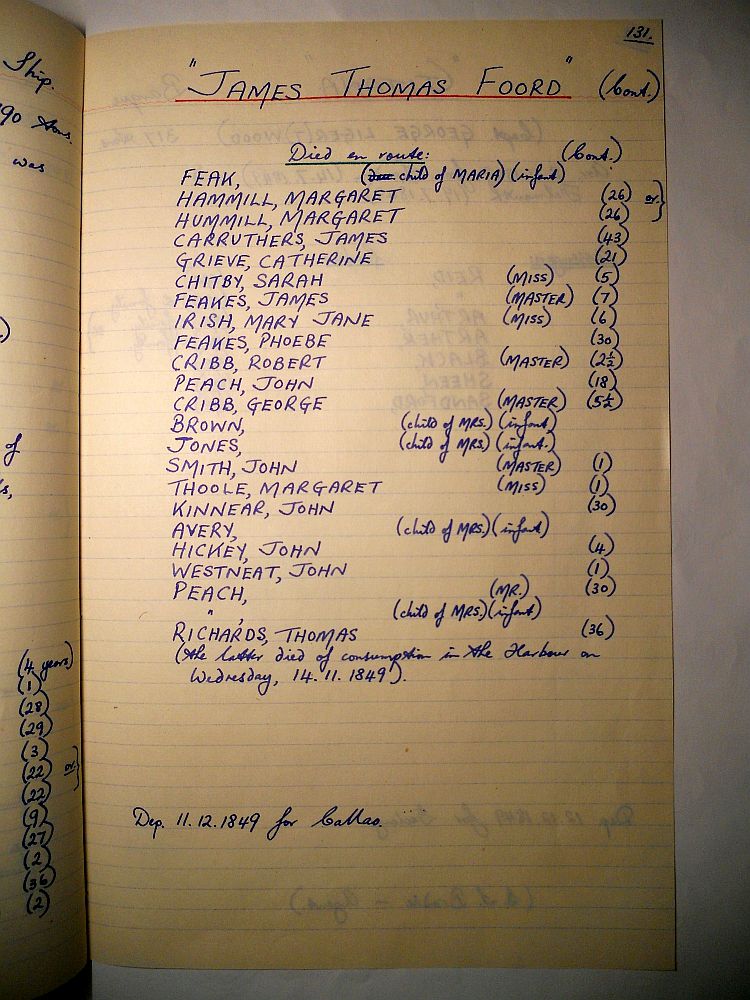 Ship.
90 tons.
was
)
of
ls,
(4 years)
(1)
(28)
(29)
(3)
(22) or }
(22)
(9)
(27)
(2)
(36)
(2)
131.
"JAMES THOMAS FOORD" (Cont.)
Died en route: (Cont.)
FEAK, (child of MARIA) (infant)
HAMMILL, MARGARET (26) or }
HUMMILL, MARGARET (26)
CARRUTHERS, JAMES (43)
GRIEVE, CATHERINE (21)
CHITBY, SARAH (MISS) (5)
FEAKES, JAMES (MASTER) (7)
IRISH, MARY JANE (MISS) (6)
FEAKES, PHOEBE (30)
CRIBB, ROBERT (MASTER) (2½)
PEACH, JOHN (18)
CRIBB, GEORGE (MASTER) (5½)
BROWN, (child of MRS.) (infant)
JONES, (child of MRS.) (infant.)
SMITH, JOHN (MASTER) (1)
THOOLE, MARGARET (MISS) (1)
KINNEAR, JOHN (30)
AVERY, (child of MRS.) (infant)
HICKEY, JOHN (4)
WESTNEAT, JOHN (1)
PEACH, (MR.) (30)
", (child of MRS.) (infant)
RICHARDS, THOMAS (36)
(the latter died of consumption in the Harbour on
Wednesday, 14.11.1849).
Dep. 11.12.1849 for Callao.